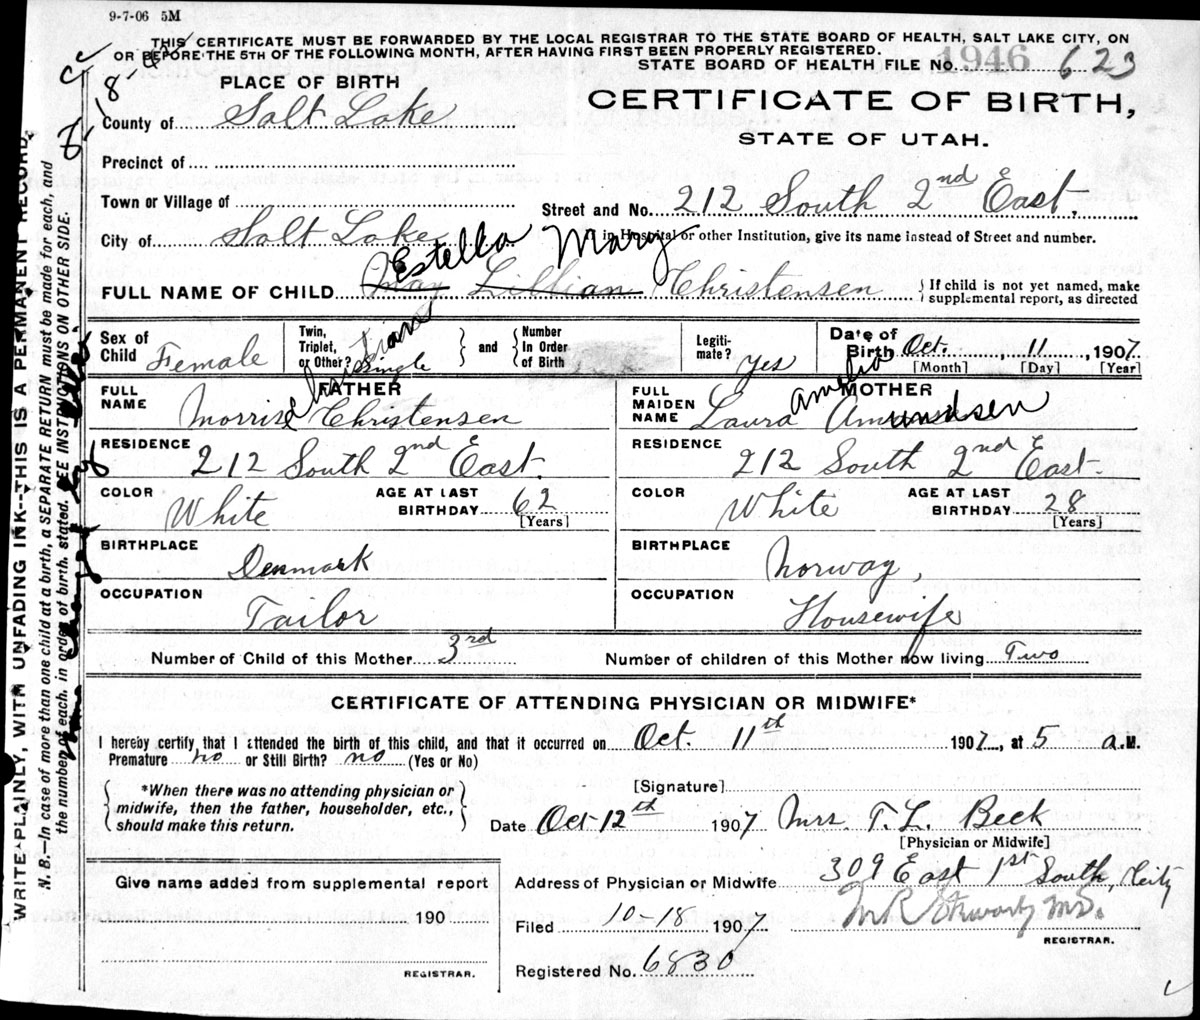 9-7-06 5M
THIS CERTIFICATE MUST BE FORWARDED BY THE LOCAL REGISTRAR TO THE STATE BOARD OF HEALTH, SALT LAKE CITY, ON
OR BEFORE THE 5TH OF THE FOLLOWING MONTH, AFTER HAVING FIRST BEEN PROPERLY REGISTERED.
STATE BOARD OF HEALTH FILE No. 1946 623
PLACE OF BIRTH
CERTIFICATE OF BIRTH,
STATE OF UTAH.
County of Salt Lake
Precinct of
Town or Village of
Street and No. 212 South 2nd East.
City of Salt Lake
If in Hospital or other Institution, give its name instead of Street and number.
Estella Mary
FULL NAME OF CHILD May Lillian Christensen
If child is not yet named, make
supplemental report, as directed
Sex of Child Female
Twin, Triplet, or Other? Single
and
Number In Order of Birth
Legitimate? Yes
Date of Birth Oct. 11, 1907
[Month] [Day] [Year]
FATHER
FULL NAME Morris Christian Christensen
RESIDENCE 212 South 2nd East.
COLOR White
AGE AT LAST BIRTHDAY 62
[Years]
BIRTHPLACE Denmark
OCCUPATION Tailor
MOTHER
FULL MAIDEN NAME Laura Amelia Amundsen
RESIDENCE 212 South 2nd East.
COLOR White
AGE AT LAST BIRTHDAY 28
[Years]
BIRTHPLACE Norway,
OCCUPATION Housewife
Number of Child of this Mother 3rd
Number of children of this Mother now living Two
CERTIFICATE OF ATTENDING PHYSICIAN OR MIDWIFE*
I hereby certify that I attended the birth of this child, and that it occurred on Oct. 11th 1907, at 5 a.M.
Premature no or Still Birth? no (Yes or No)
*When there was no attending physician or
midwife, then the father, householder, etc.,
should make this return.
[Signature]
Date Oct 12th 1907 Mrs. T. L. Beck
[Physician or Midwife]
Give name added from supplemental report
190
REGISTRAR.
Address of Physician or Midwife 309 East 1st South, City
Filed 10-18 1907
REGISTRAR.
Registered No. 6830
WRITE PLAINLY, WITH UNFADING INK--THIS IS A PERMANENT RECORD.
N. B.—In case of more than one child at a birth, a SEPARATE RETURN must be made for each, and
the number of each, in order of birth, stated. SEE INSTRUCTIONS ON OTHER SIDE.